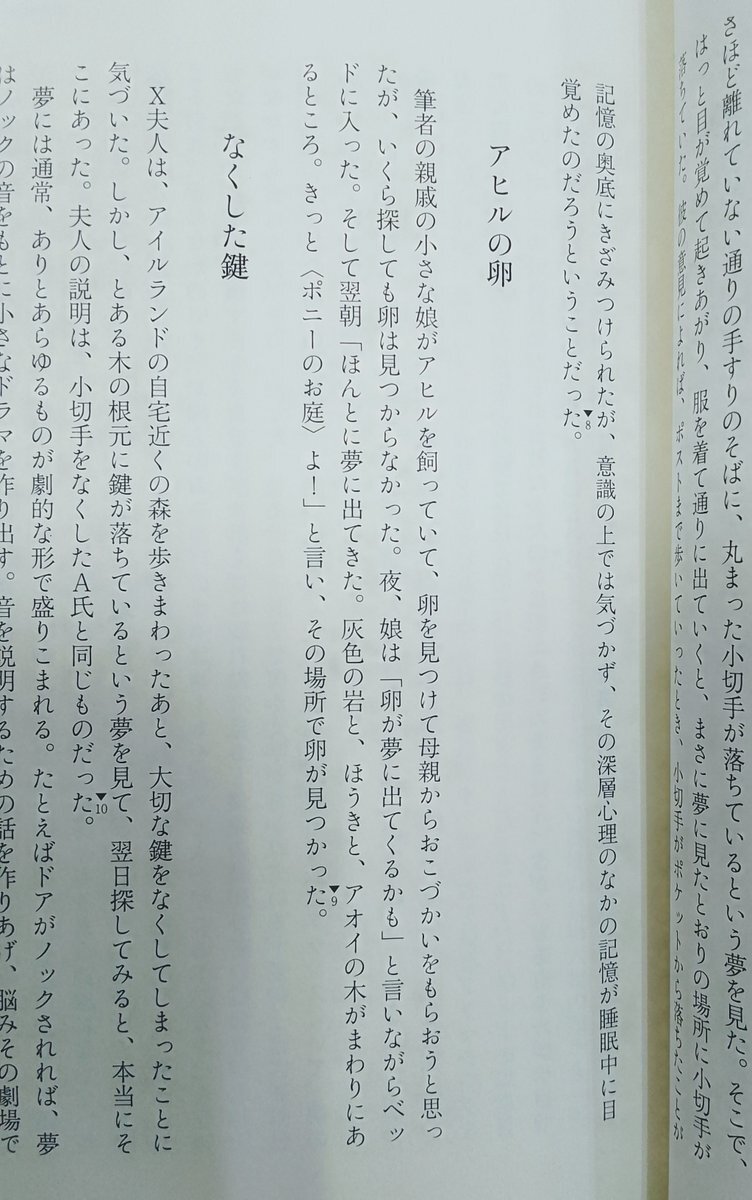 さほど離れていない通りの手すりのそばに、丸まった小切手が落ちているという夢を見た。そこで、
はっと目が覚めて起きあがり、服を着て通りに出ていくと、まさに夢に見たとおりの場所に小切手が
落ちていた。彼の意見によれば、ポストまで歩いていったとき、小切手がポケットから落ちたことが
記憶の奥底にきざみつけられたが、意識の上では気づかず、その深層心理のなかの記憶が睡眠中に目
覚めたのだろうということだった。▼8
アヒルの卵
筆者の親戚の小さな娘がアヒルを飼っていて、卵を見つけて母親からおこづかいをもらおうと思っ
たが、いくら探しても卵は見つからなかった。夜、娘は「卵が夢に出てくるかも」と言いながらベッ
ドに入った。そして翌朝「ほんとに夢に出てきた。灰色の岩と、ほうきと、アオイの木がまわりにあ
るところ。きっと〈ポニーのお庭〉よ！」と言い、その場所で卵が見つかった。▼9
なくした鍵
X夫人は、アイルランドの自宅近くの森を歩きまわったあと、大切な鍵をなくしてしまったことに
気づいた。しかし、とある木の根元に鍵が落ちているという夢を見て、翌日探してみると、本当にそ
こにあった。夫人の説明は、小切手をなくしたA氏と同じものだった。▼10
夢には通常、ありとあらゆるものが劇的な形で盛りこまれる。たとえばドアがノックされれば、夢
はノックの音をもとに小さなドラマを作り出す。音を説明するための話を作りあげ、脳みその劇場で